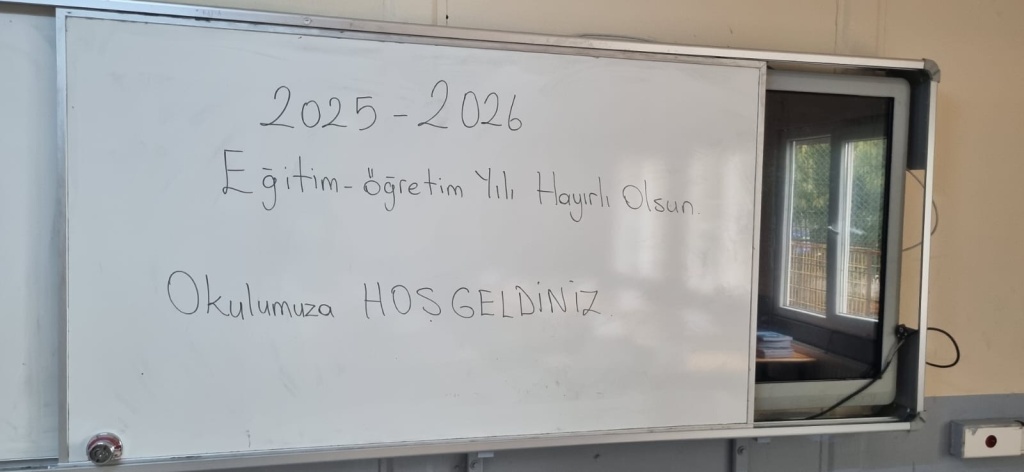 2025-2026
Eğitim-öğretim Yılı Hayırlı Olsun.
Okulumuza HOŞGELDİNİZ.